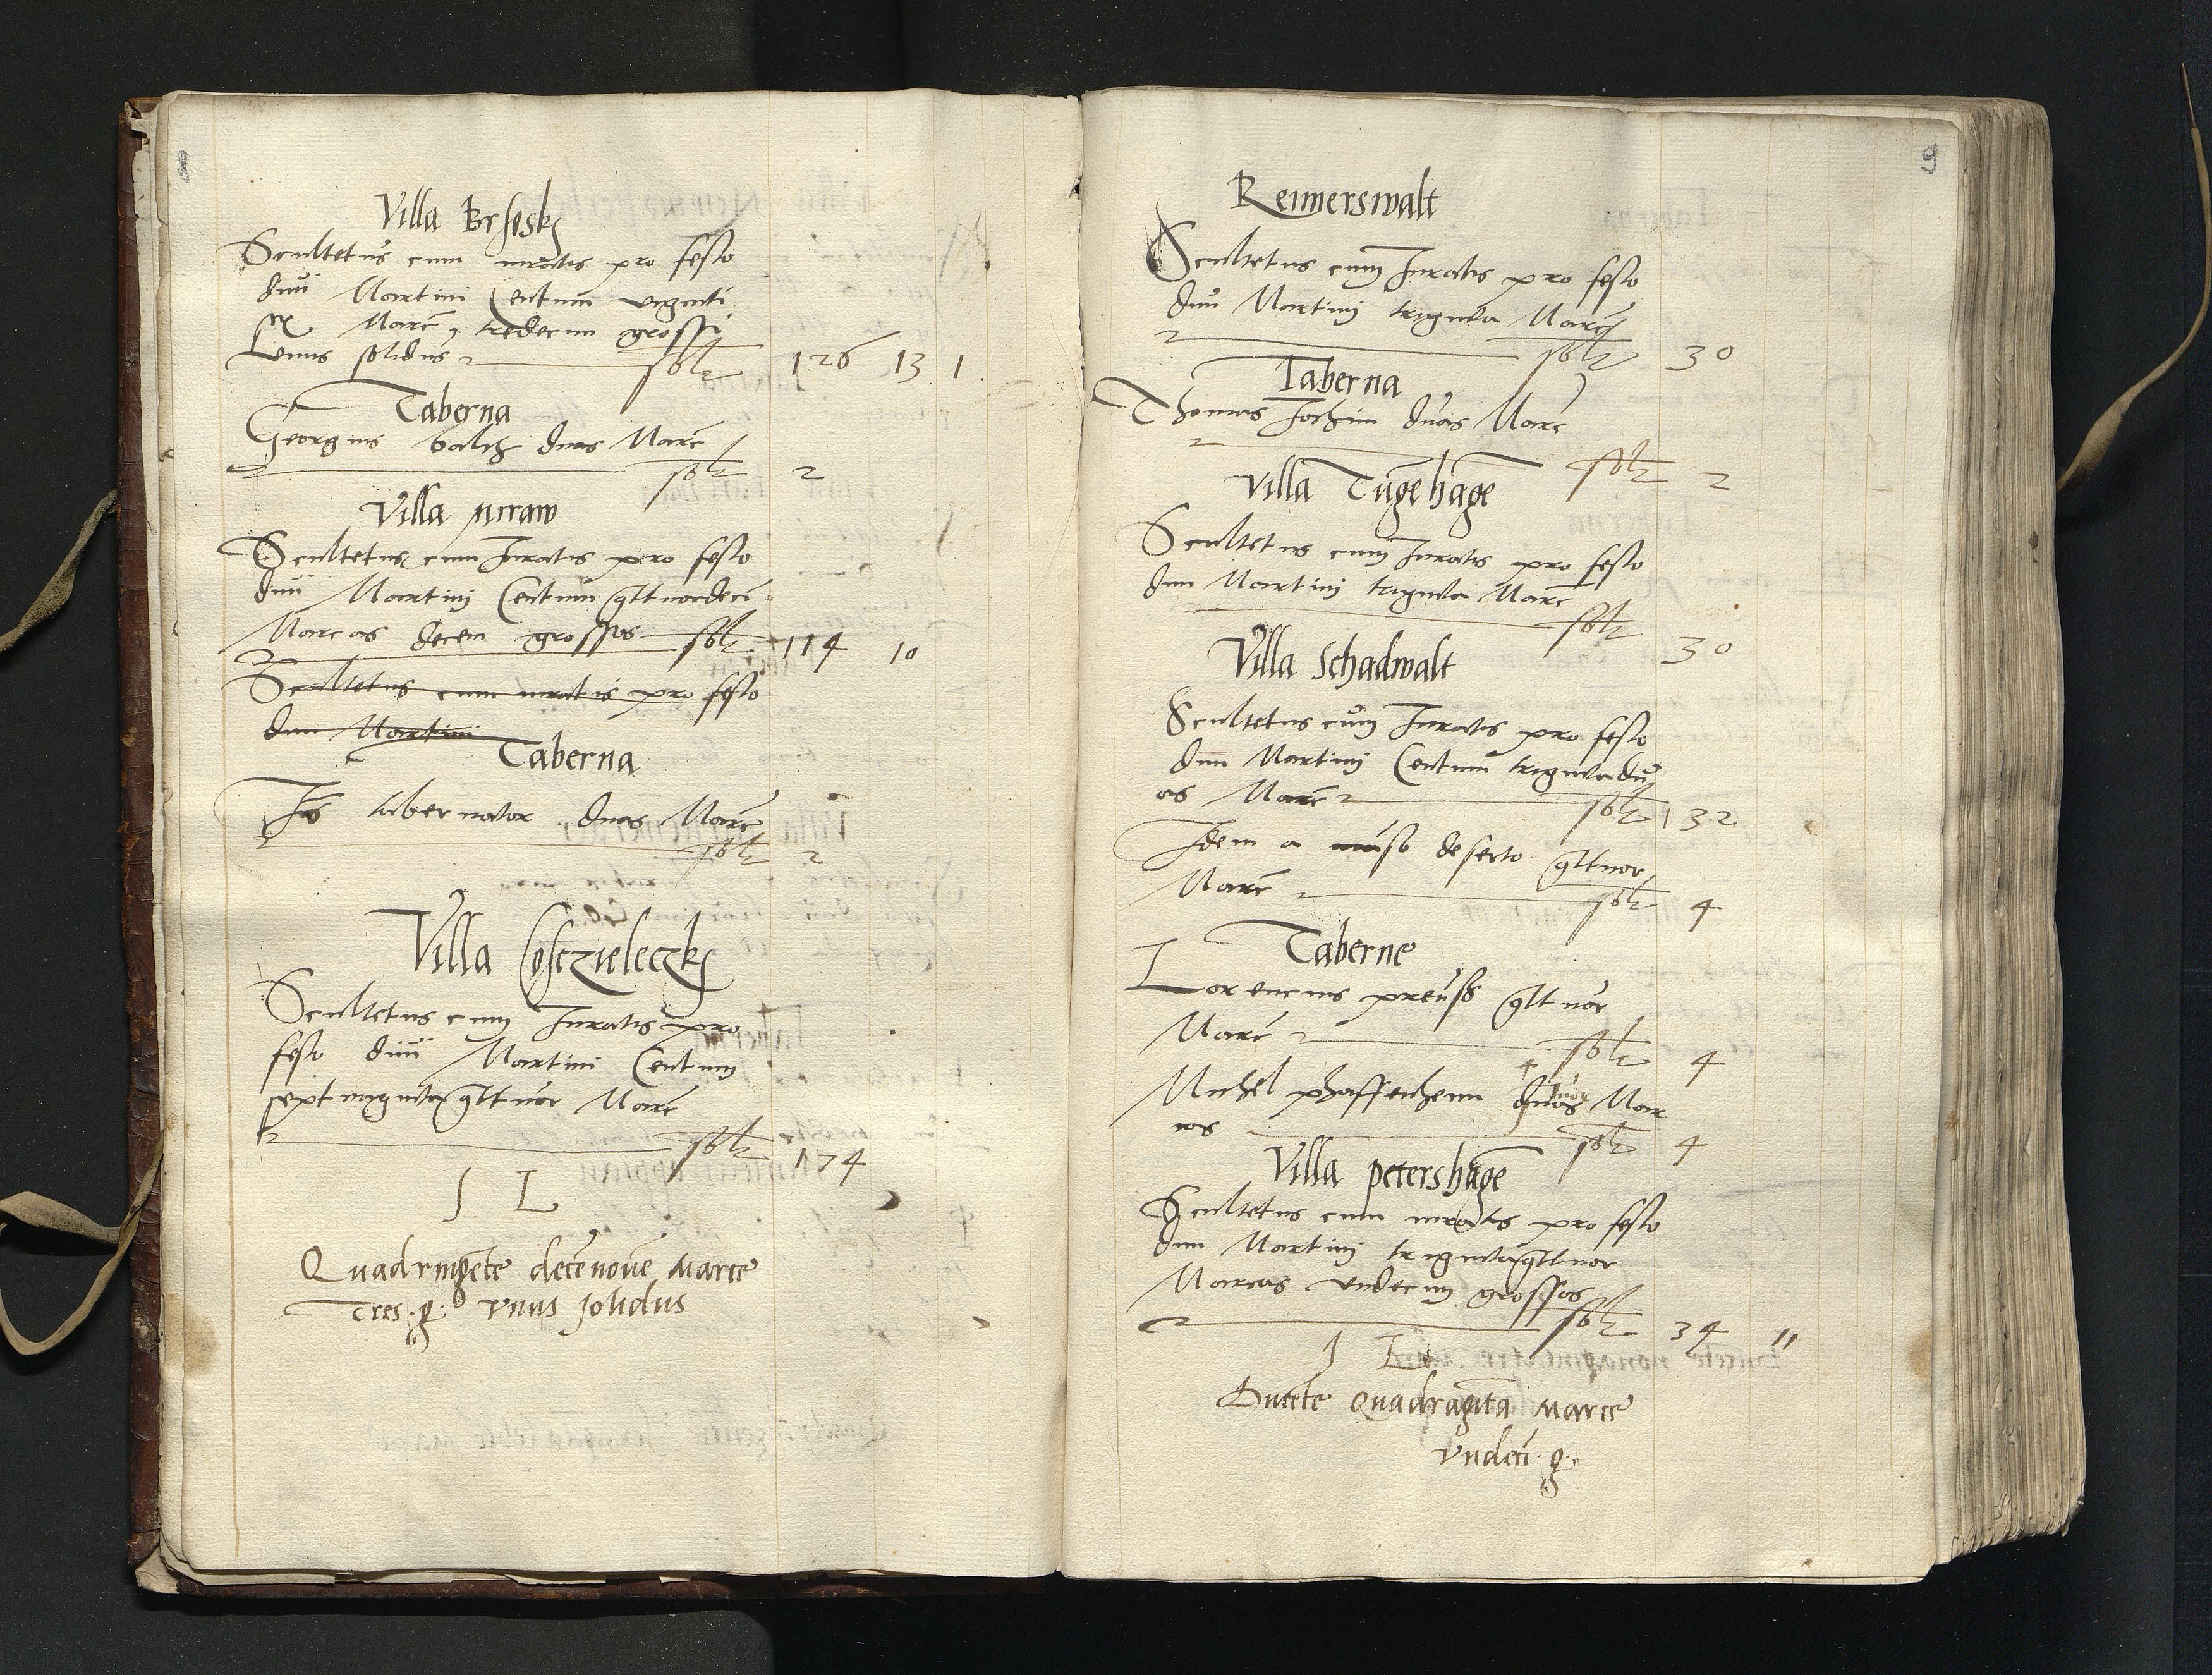 8
Villa Brseskj
Scultetus cum iuratis pro festo
diui Martini Centum viginti
sex Marc, tredecim grossi
Vnus solidus solt 126 13 1
Taberna
Georgius balch duas Marc
solt 2
Villa niraw
Scultetus cum Iuratis pro festo
diui Martinj Centum qttuordeci
Marcas decem grossos solt 114 10
Scultetus cum iuratis pro festo
diui Martini
Taberna
tabernator duas Marc
solt 2
Villa Coscieleczkj
Scultetus cum Iuratis pro
festo diui Martini Centum
septuagintaqttuor Marc
solt 174
S L
Quadringete decenoue Marce
Tres g: vnus solidus
9
Reimerswalt
Scultetus cum Iuratis pro festo
diui Martinj triginta Marc
solt 30
Taberna
Thomas Jochim duas Marc
solt 2
Villa Tugehage
Scultetus cum Iuratis pro festo
diui Martinj triginta Marc
solt 30
Villa Schadwalt
Scultetus cum Iuratis pro festo
diui Martinj Centum trigintadu
as Marc solt 132
Idem a deserto qttuor
Marc solt 4
Taberne
Lorencius preuss qttuor
Marc solt 4
Michel phaffenhem duas Mar
cas solt 4
Villa petershage
Scultetus cum iuratis pro festo
diui Martinj trigintaqttuor
Marcas vndecim grossos
solt 34 11
S L
Ducete Quadraginta Marce
vndeci g: